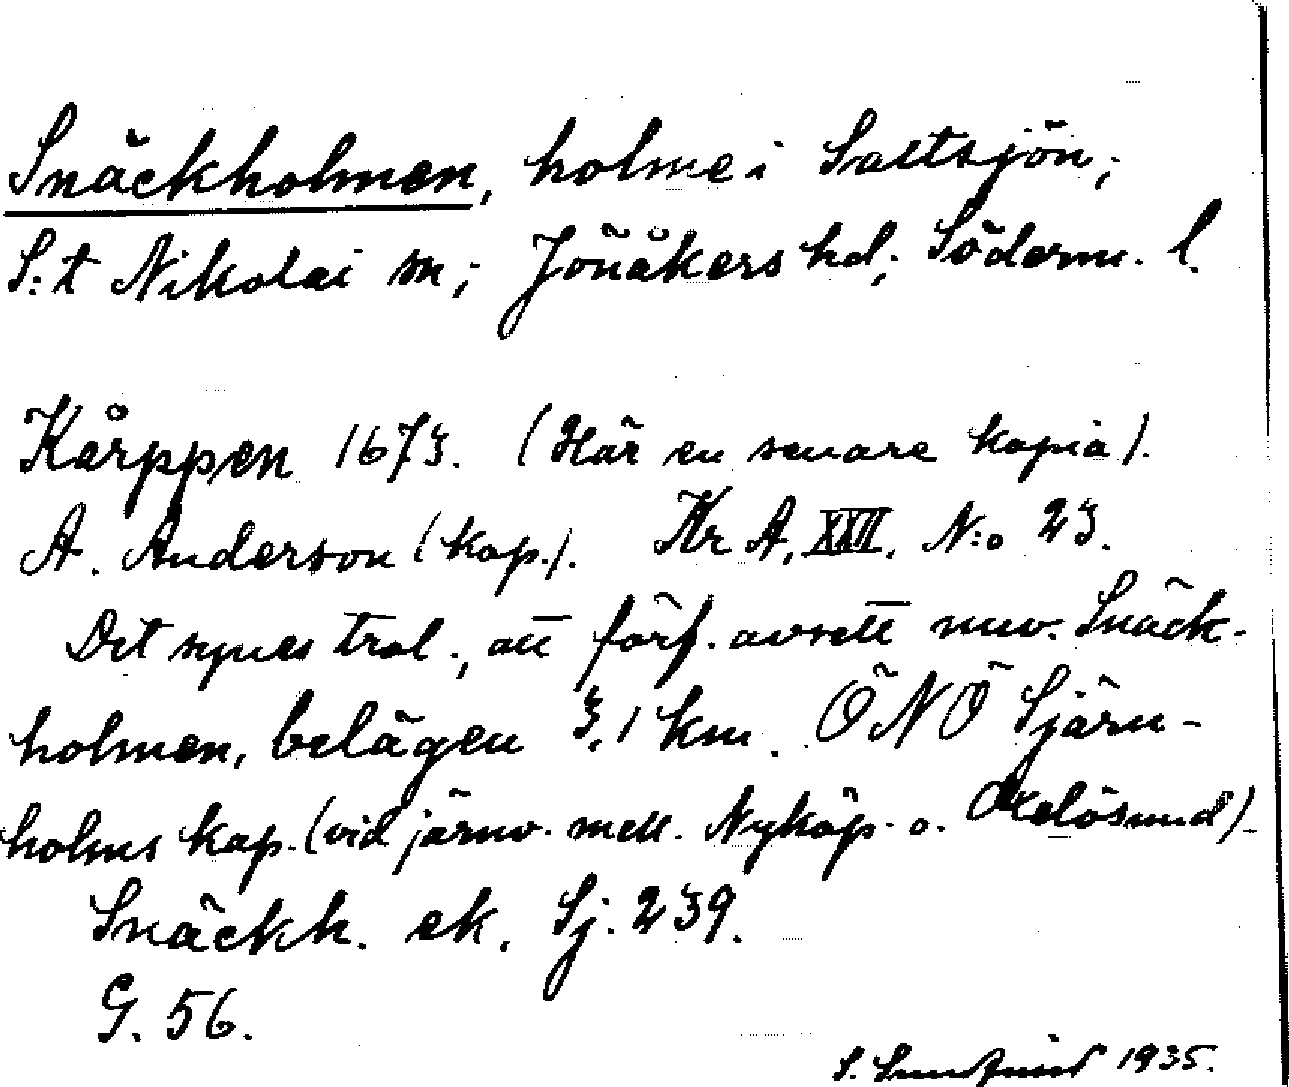 Snäckholmen, holme i Saltsjön;
S:t Nikolai sn; Jönåkers hd; Söderm. l.
Kårppen 1673. (Här en senare kopia).
A. Anderson (kop.). Kr A, XXII, N:o 23.
Det synes trol., att förf. avsett nuv. Snäck-
holmen, belägen 3,1 km. ÖNÖ Sjärn-
holms kap. (vid järnv. mell. Nyköp. o. Oxelösund).
Snäckh. ek. Sj. 239.
G. 56.
S. 1935.